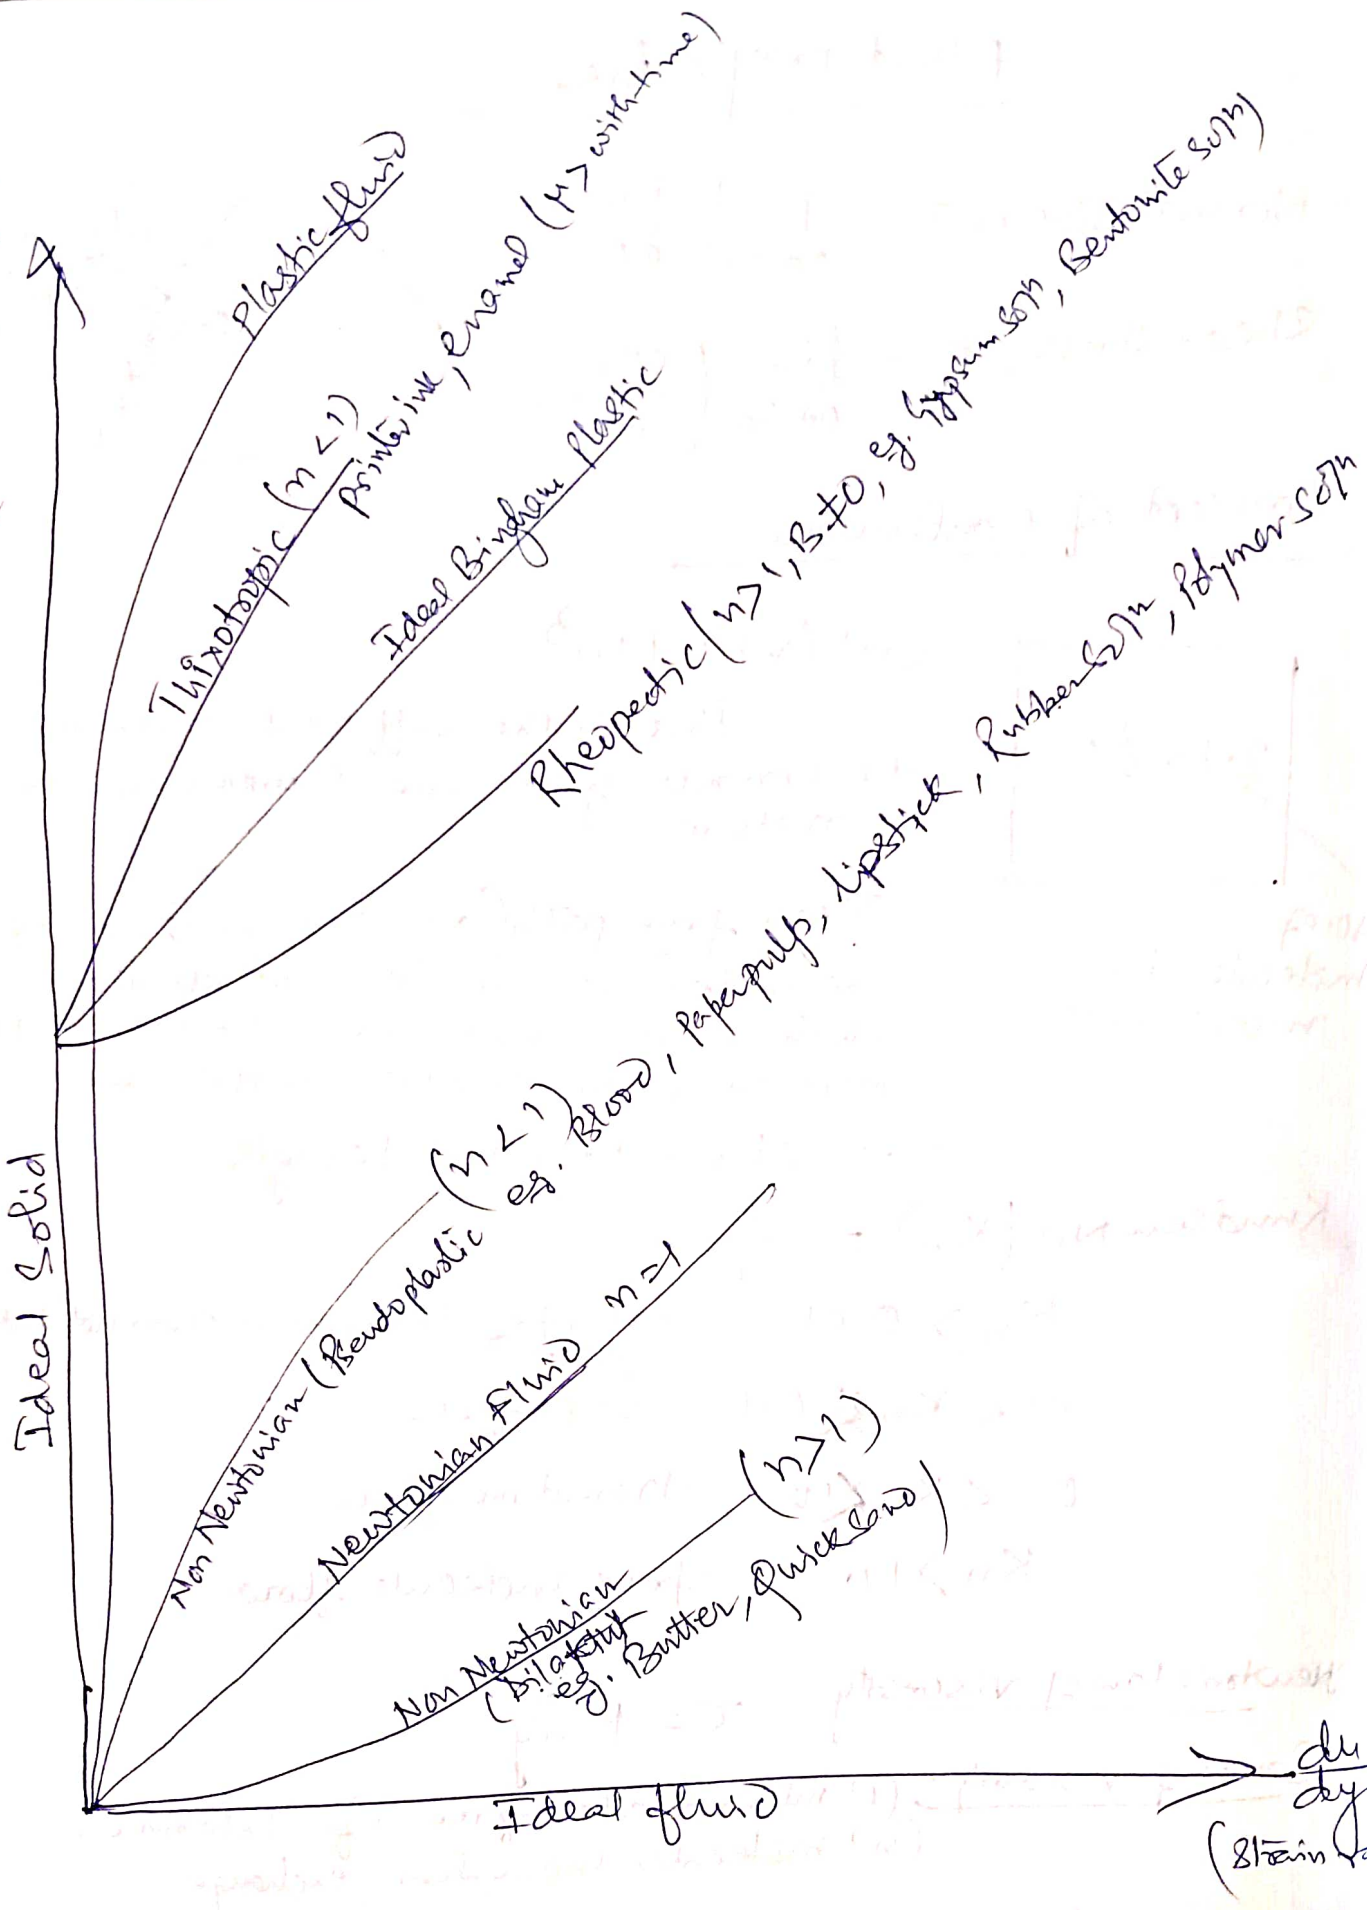 Plastic fluid
Thixotropic (n < 1)
printer ink, enamel (μ > with time)
Ideal Bingham Plastic
Rheopectic (n > 1, B ≠ 0, eg. Gypsum sol^n, Bentonite sol^n)
Non Newtonian (Pseudoplastic (n < 1)
eg. Blood, Paper pulp, lipstick, Rubber sol^n, Polymer sol^n
Newtonian Fluid n = 1
Non Newtonian (n > 1)
(Dilatant
eg. Butter, Quick sand)
Ideal Solid
Ideal fluid
du/dy
(Strain